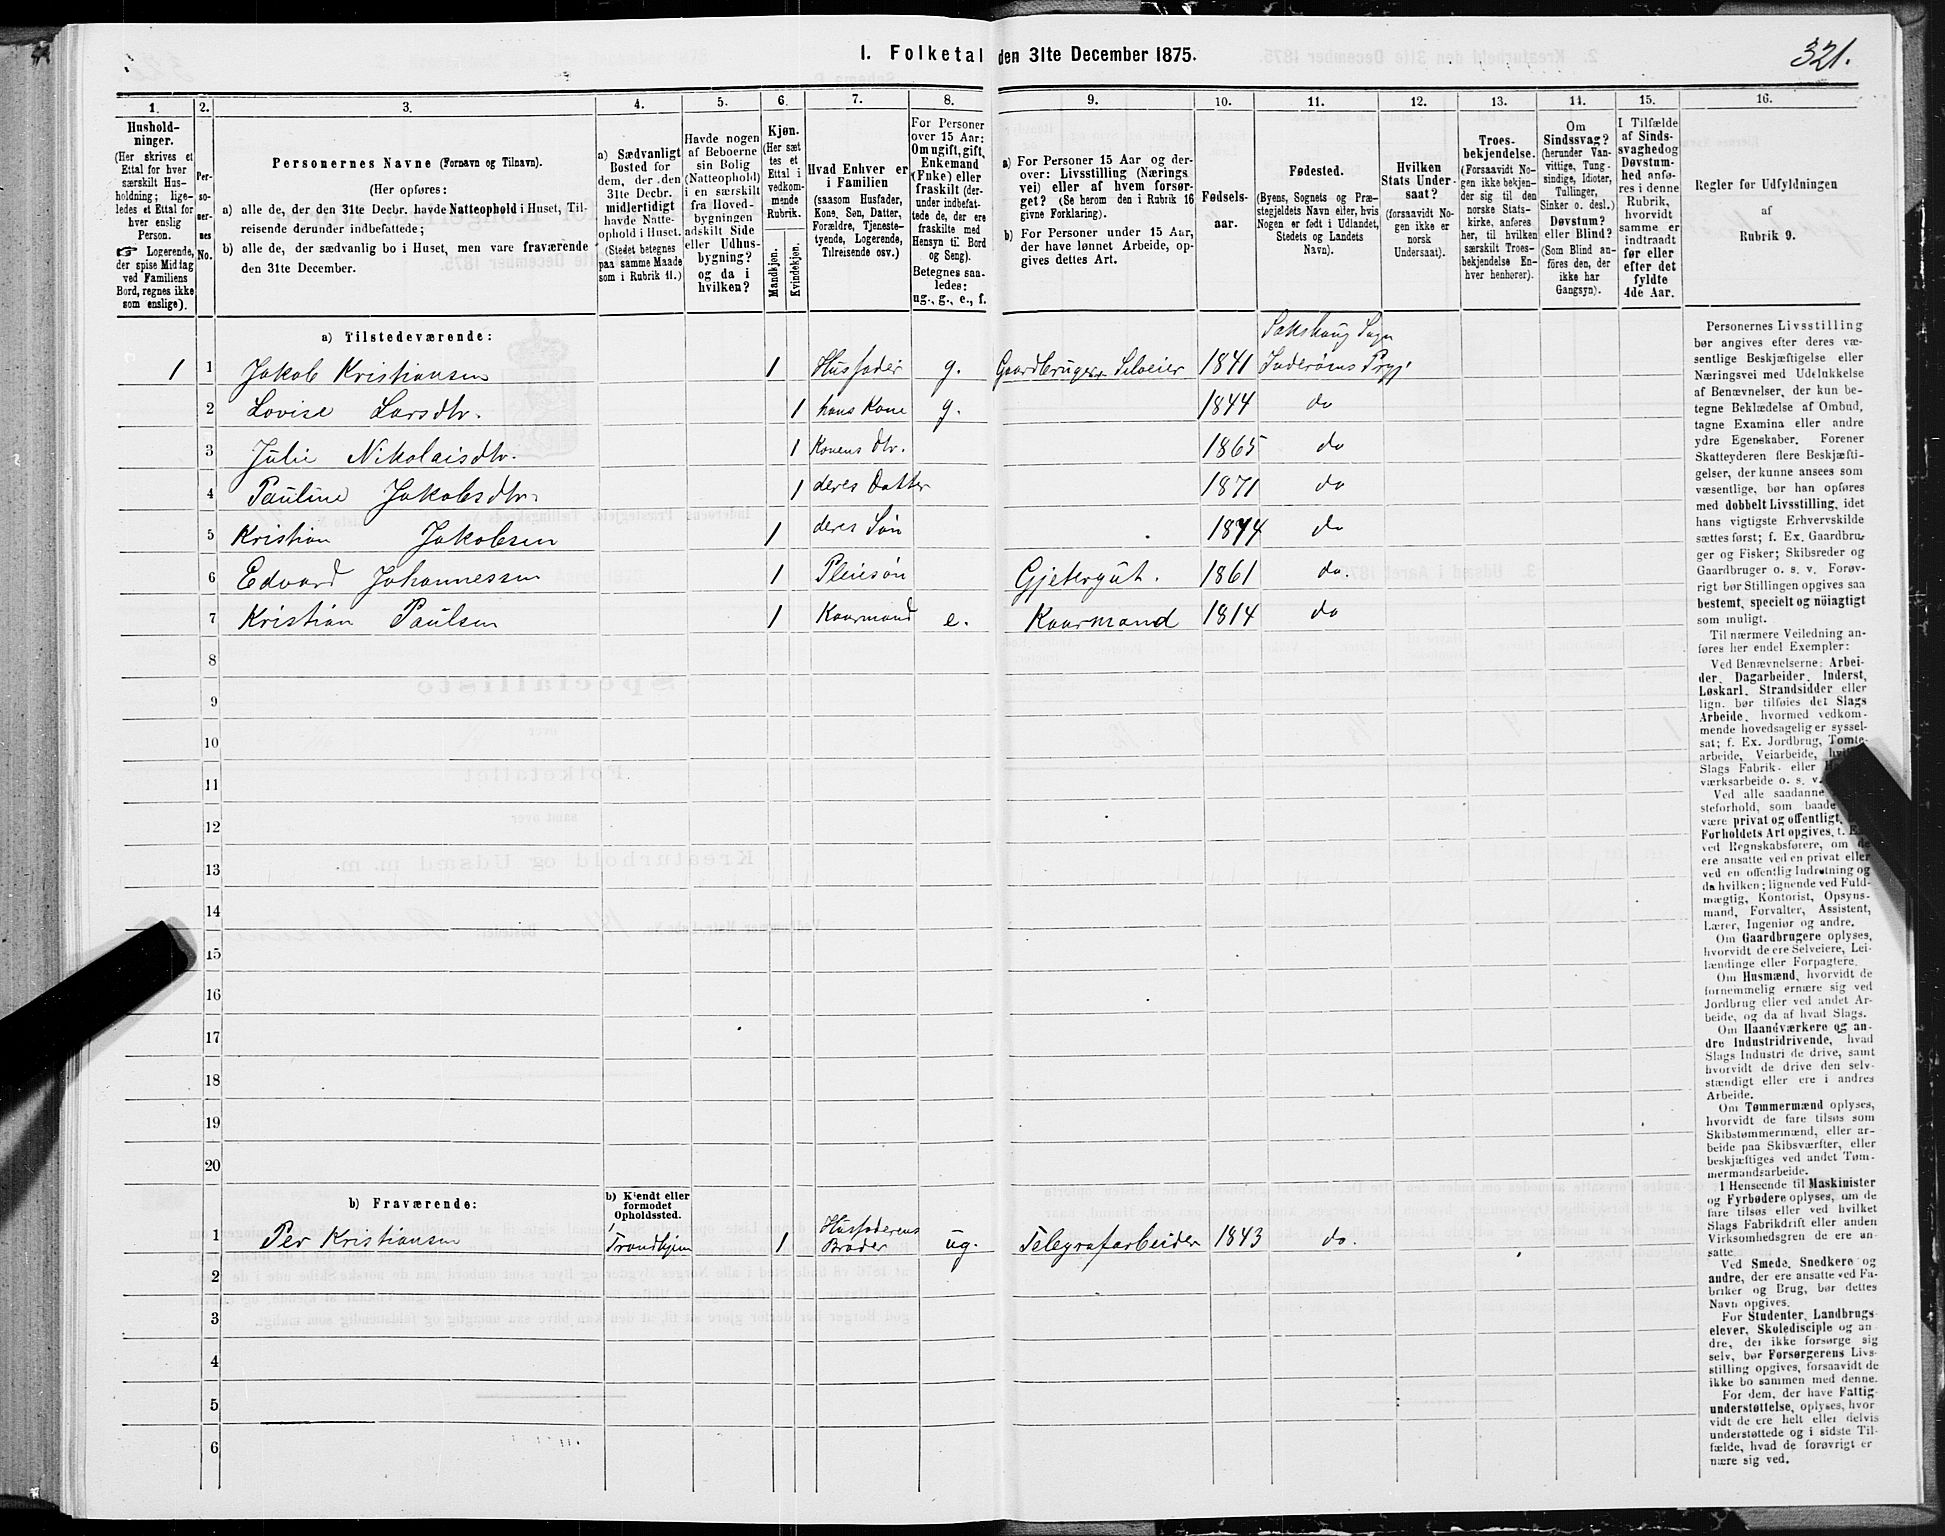 I. Folketal den 31te December 1875.
321.
1. 2. 3. 4. 5. 6. 7. 8. 9. 10. 11. 12. 13. 14. 15. 16.
Hushold-
ninger.
(Her skrives et
Ettal for hver
særskilt Hus-
holdning; lige-
ledes et Ettal for
hver enslig
Person.
☞ Logerende,
der spise Middag
ved Familiens
Bord, regnes ikke
som enslige).
Per-
so-
ner-
nes
No.
Personernes Navne (Fornavn og Tilnavn).
(Her opføres:
a) alle de, der den 31te Decbr. havde Natteophold i Huset, Til-
reisende derunder indbefattede;
b) alle de, der sædvanlig bo i Huset, men vare fraværende
den 31te December.
a) Sædvanligt
Bosted for
dem, der den
31te Decbr.
midlertidigt
havde Natte-
ophold i Huset.
(Stedet betegnes
paa samme Maade
som i Rubrik 11.)
Havde nogen
af Beboerne
sin Bolig
(Natteophold)
i en særskilt
fra Hoved-
bygningen
adskilt Side
eller Udhus-
bygning?
og da i
hvilken?
Kjøn.
(Her sæt
tes et
Ettal i
vedkom-
mende
Rubrik.
Mandkjøn.
Kvindekjøn.
Hvad Enhver er
i Familien
(saasom Husfader,
Kone, Søn, Datter,
Forældre, Tjeneste-
tyende, Logerende,
Tilreisende osv.)
For Personer
over 15 Aar:
Om ugift, gift,
Enkemand
(Enke) eller
fraskilt (der-
under indbefat-
tede de, der ere
fraskilte med
Hensyn til Bord
og Seng).
Betegnes saa-
ledes:
ug., g., e., f.
a) For Personer 15 Aar og der-
over: Livsstilling (Nærings
vei) eller af hvem forsør-
get? (Se herom den i Rubrik 16
givne Forklaring).
b) For Personer under 15 Aar,
der have lønnet Arbeide, op-
gives dettes Art.
Fødsels-
aar.
Fødested.
(Byens, Sognets og Præ-
stegjeldets Navn eller, hvis
Nogen er født i Udlandet,
Stedets og Landets
Navn).
Hvilken
Stats Under-
saat?
(forsaavidt No-
gen ikke er
norsk
Undersaat).
Troes-
bekjendelse.
(Forsaavidt No-
gen ikke bekjen-
der sig til den
norske Stats-
kirke, anføres
her, til hvilken
særskilt Troes-
bekjendelse En-
hver henhører).
Om
Sindssvag?
(herunder Van-
vittige, Tung-
sindige, Idioter,
Tullinger,
Sinker o. desl.)
Døvstum?
eller Blind?
(Som Blind an-
føres den, der
ikke har
Gangsyn).
I Tilfælde
af Sinds-
svaghed og
Døvstum-
hed anfø-
res i denne
Rubrik,
hvorvidt
samme er
indtraadt
før eller
efter det
fyldte
4de Aar.
Regler før Udfyldningen
af
Rubrik 9.
a) Tilstedeværende:
Sakshaug Sogn
1 1 Jakob Kristiansen 1 Husfader g. Gaardbruger Selveier 1841 Inderøens Prgj.
2 Lovise Larsdtr. 1 hans Kone g. 1844 do
3 Julie Nikolaisdtr. 1 Konens dtr. 1865 do
4 Pauline Jakobsdtr. 1 deres Datter 1871 do
5 Kristian Jakobsen 1 deres Søn 1874 do
6 Edvard Johannessen 1 Pleiesøn Gjetergut. 1861 do.
7 Kristian Paulsen 1 Kaarmand e. Kaarmand 1814 do
8
9
10
11
12
13
14
15
16
17
18
19
20
b) Fraværende:
b) Kjendt eller
formodet
Opholdssted.
1 Per Kristiansen Trondhjem 1 Husfaderens Broder ug. Telegrafarbeider 1843 do.
2
3
4
5
6
Personernes Livsstilling
bør angives efter deres væ-
sentlige Beskjæftigelse eller
Næringsvei med Udelukkelse
af Benævnelser, der kun be-
tegne Beklædelse af Ombud,
tagne Examina eller andre
ydre Egenskaber. Forener
Skatteyderen flere Beskjæfti-
gelser, der kunne ansees som
væsentlige, bør han opføres
med dobbelt Livsstilling, idet
hans vigtigste Erhvervskilde
sættes først; f. Ex. Gaardbru-
ger og Fisker; Skibsreder og
Gaardbruger o. s. v. Forøv-
rigt bør Stillingen opgives saa
bestemt, specielt og nöiagtigt
som muligt.
Til nærmere Veiledning an-
føres her endel Exempler:
Ved Benævnelserne: Arbei-
der, Dagarbeider, Inderst,
Løskarl, Strandsidder eller
lign. bør tilføies det Slags
Arbeide, hvormed vedkom-
mende hovedsagelig er syssel-
sat; f. Ex. Jordbrug, Tomte-
arbeide, Veiarbeide,
Slags Fabrik- eller
værksarbeide o. s. v.
Ved alle saadanne
steforhold, som baade
være privat og offentligt,
Forholdets Art opgives, t. Ex.
ved Regnskabsførere, om de
ere ansatte ved en privat eller
ved en offentlig Indretning og
da hvilken; lignende ved Fuld-
mægtig, Kontorist, Opsyns-
mand, Forvalter, Assistent,
Lærer, Ingeniør og andre.
Om Gaardbrugere oplyses,
hvorvidt de ere Selveiere, Lei-
lændinge eller Forpagtere.
Om Husmænd, hvorvidt de
fornemmelig ernære sig ved
Jordbrug eller ved andet Ar-
beide, og da af hvad Slags.
Om Haandværkere og an-
dre Industridrivende, hvad
Slags Industri de drive, samt
hvorvidt de drive den selv-
stændigt eller ere i andres
Arbeide.
Om Tømmermænd oplyses,
hvorvidt de fare tilsøs som
Skibstømmermænd, eller ar-
beide paa Skibsværfter, eller
beskjæftiges ved andet Tøm-
mermandsarbeide.
I Henseende til Maskinister
og Fyrbødere oplyses, om de
fare tilsøs eller ved hvilket
Slags Fabrikdrift eller anden
Virksomhedsgren de ere an-
satte.
Ved Smede, Snedkere og
andre, der ere ansatte ved Fa-
briker og Brug, bør dettes
Navn opgives.
For Studenter, Landbrugs-
elever, Skoledisciple og an-
dre, der ikke forsørge sig
selv, bør Forsørgerens Livs-
stilling opgives, forsaavidt de
ikke bo sammen med denne.
For dem, der have Fattig-
understøttelse, oplyses, hvor
vidt de ere helt eller delvis
understøttede og i sidste Til-
fælde, hvad de forøvrigt er
nære sig ved.